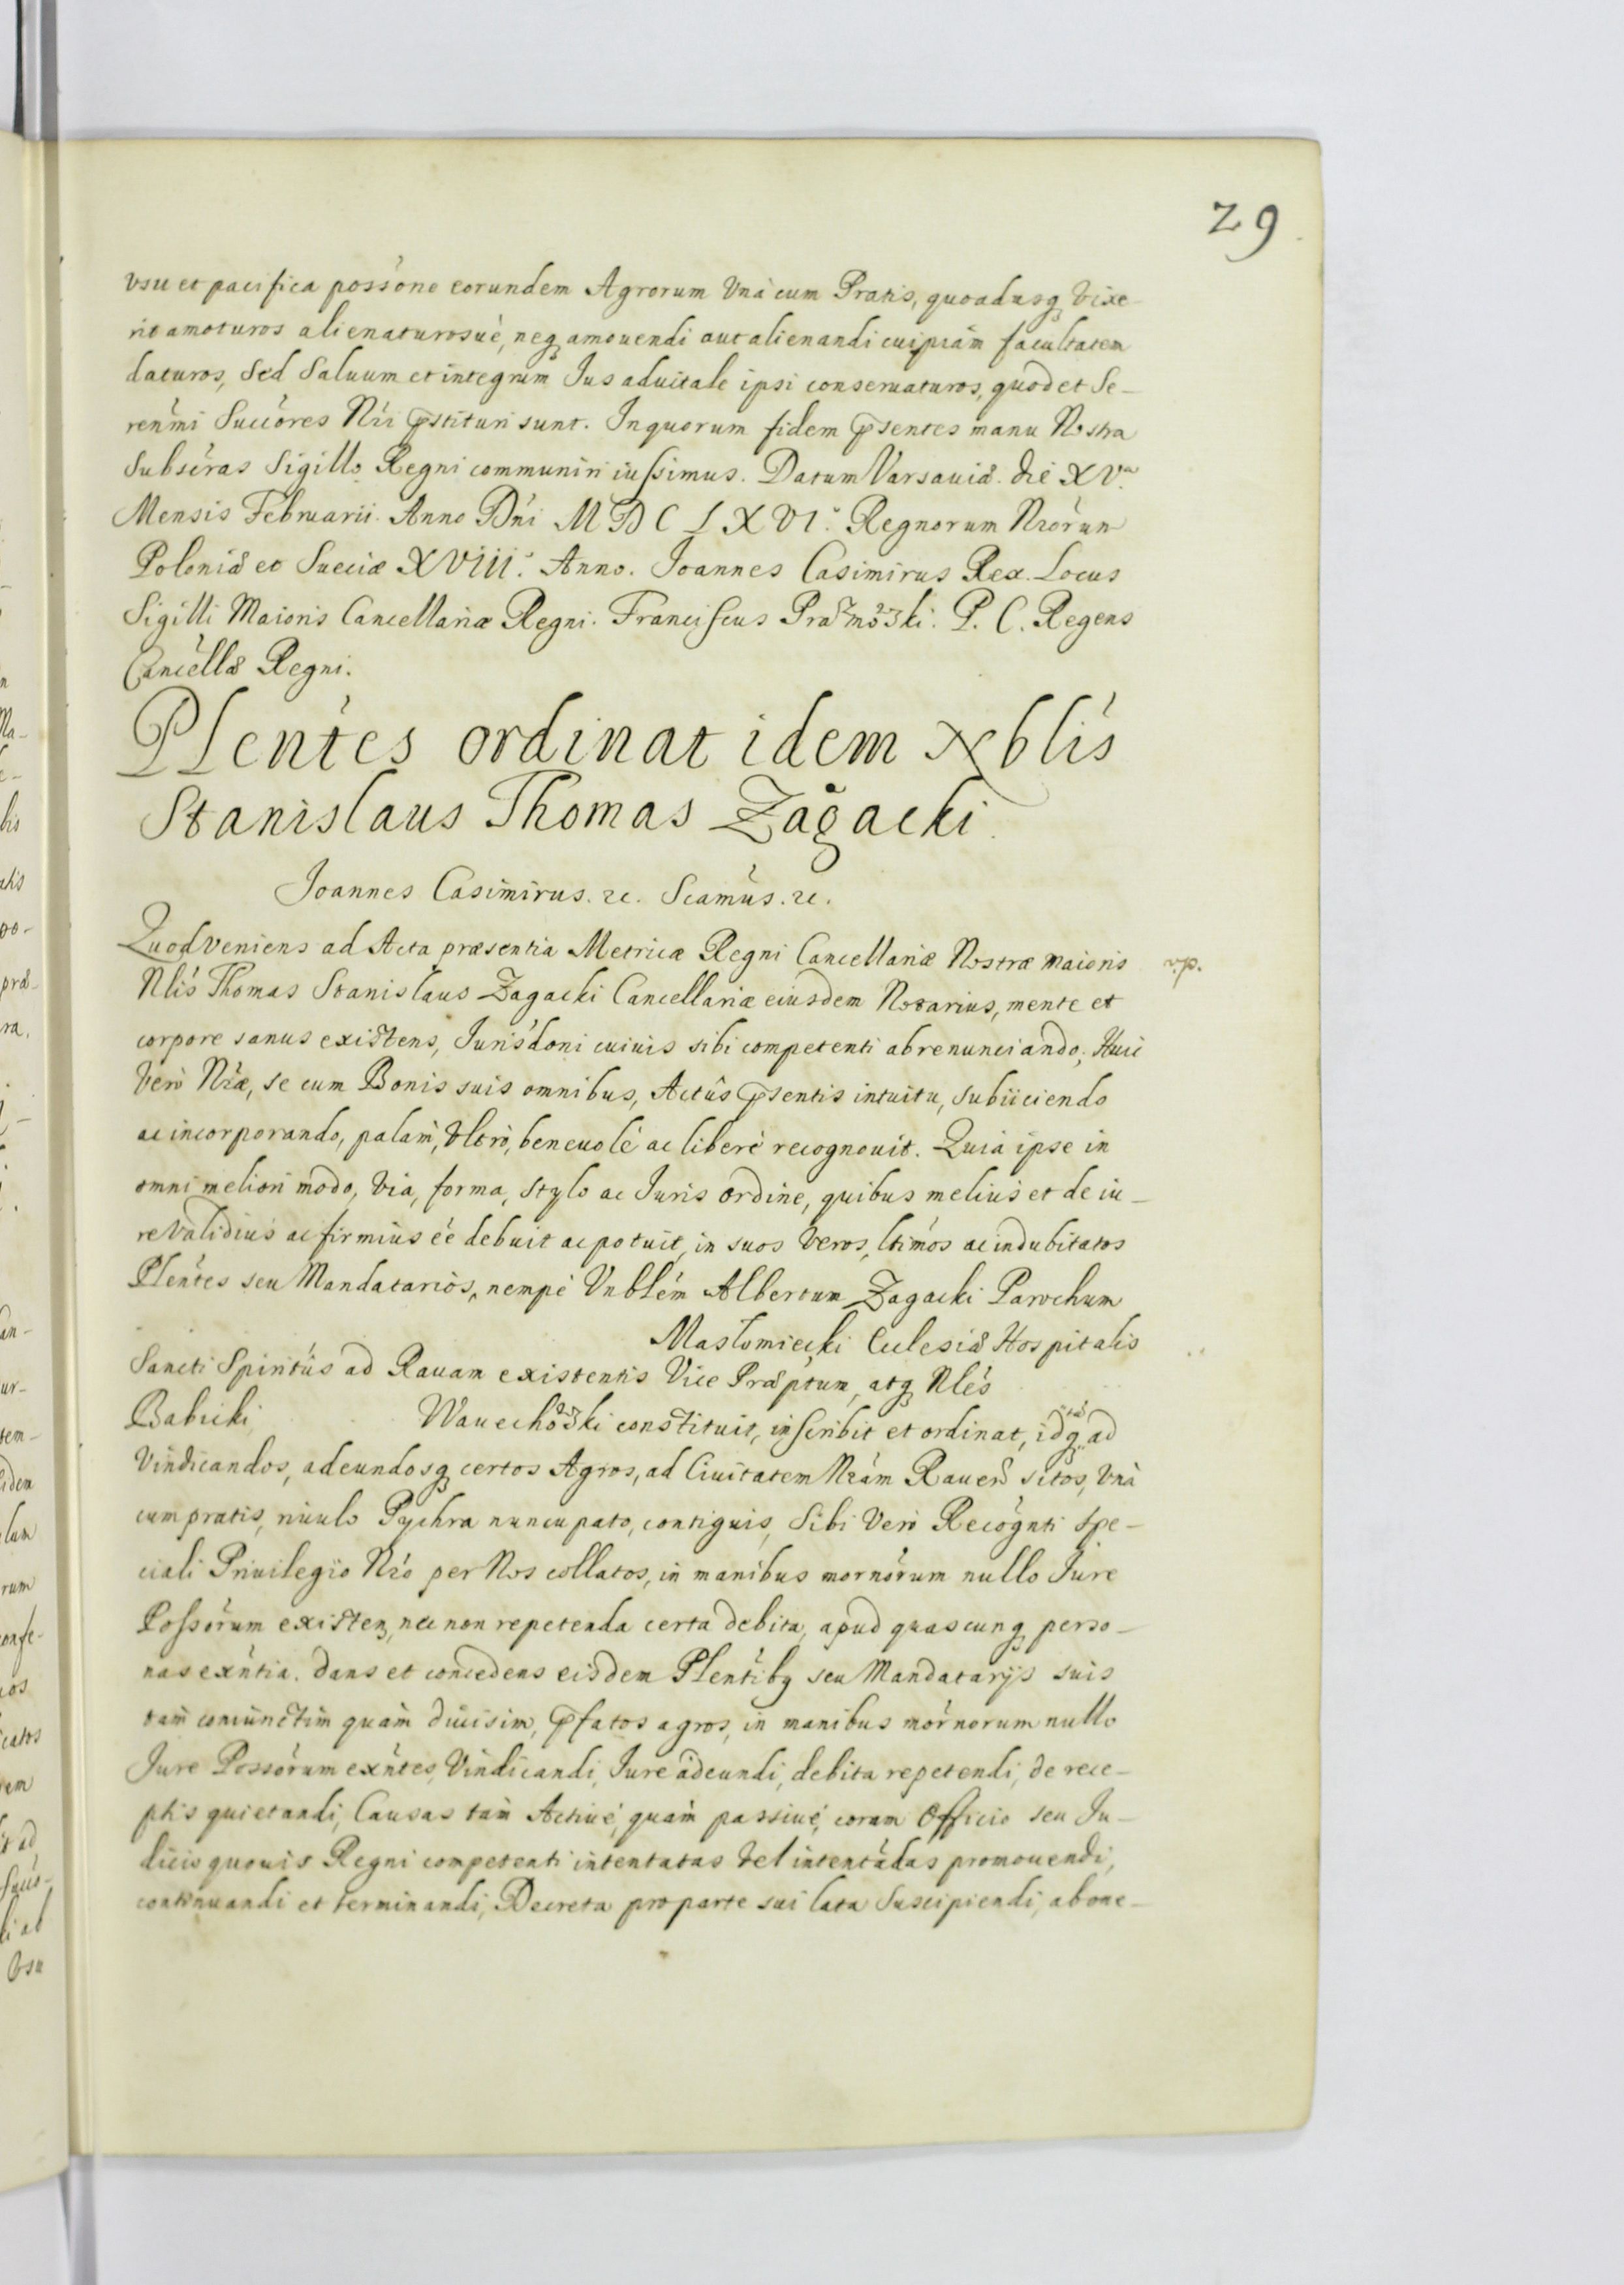 29
vsu et pacifica possōne eorundem Agrorum Vnà cum Pratis, quoadusq̢ Vixe-
rit amoturos alienaturosuè, neq̢ amouendi aut alienandi cuipiam facultatem
daturos, Sed Saluum et integrum Jus aduitale ipsi conseruaturos, quod et Se-
renḿi Succóres Nŕi p̄stituri sunt. In quorum fidem p̄sentes manu Nostra
Subscŕas Sigillo Regni communiri iussimus. Datum Varsauiæ. die XV.ª
Mensis Februarii. Anno Dńi MDCLXVI.º Regnorum Nrórum
Poloniæ et Sueciæ XVIII.º Anno. Joannes Casimirus Rex. Locus
Sigilli Maioris Cancellariæ Regni. Franciscus Prażmoski. P. C. Regens
Cancéllæ Regni.
Plentés ordinat idem Nblís
Stanislaus Thomas Zagacki
Joannes Casimirus. ꝛc. Scamús. ꝛc.
Quod veniens ad Acta præsentia Metricæ Regni Cancellariæ Nostræ maioris
v.p.
Nlís Thomas Stanislaus Zagacki Cancellariæ eiusdem Notarius, mente et
corpore sanus existens, Jurisdoni cuiuis sibi competenti abrenunciando; Huic
Verò Nŕæ, se cum Bonis suis omnibus, Actûs p̄sentis intuitu, subiiciendo
ac incorporando, palam, Vltrò, beneuolè ac liberè recognouit. Quia ipse in
omni meliori modo, Via, forma, stylo ac Juris ordine, quibus meliùs et de iu-
re Validiùs ac firmiùs éé debuit ac potuit, in suos Veros, ltimós ac indubitatos
Plentés seu Mandatariòs, nempè Vnblém Albertum Zagacki Parochum
Masłomiecki Ecclesiæ Hospitalis
Sancti Spiritûs ad Rauam existentis Vice Præptum, atq̢ Nlés
Babicki Wauechoski constituit, inscribit et ordinat, idq̢ ad
Vindicandos, adeundosq̢ certos Agros, ad Ciuitatem Nrám Rauen̄ sitos, Vnà
cum pratis, riuulo Pychra nuncupato, contiguis, Sibi Verò Recógnti Spe-
ciali Priuilegio Nró per Nos collatos, in manibus mornórum nullo Jure
Possórum existen̢, nec non repetenda certa debita, apud quascunq̢ perso-
nas exńtia. Dans et concedens eisdem Plentib9 seu Mandatarijs suis
tam coniunctim quàm diuisim, p̄fatos agros, in manibus mornorum nullo
Jure Possórum exńtes, Vindicandi, Jure adeundi, debita repetendi, de rece-
ptis quietandi, Causas tàm Actiuè, quàm passiuè, coram Officio seu Ju-
dicio quouis Regni competenti intentatas Vel intentádas promouendi,
continuandi et terminandi, Decreta pro parte sui lata Suscipiendi, ab one-